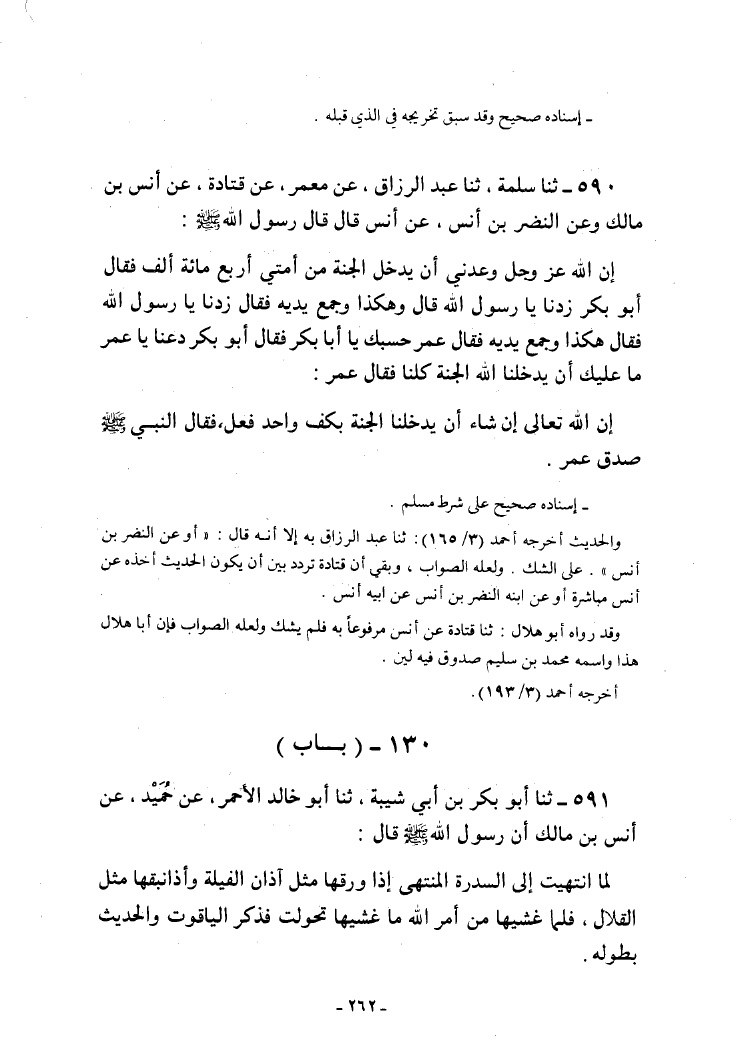 ـ إسناده صحيح وقد سبق تخريجه في الذي قبله .
٥٩٠ ـ ثنا سلمة ، ثنا عبد الرزاق ، عن معمر ، عن قتادة ، عن أنس بن
مالك وعن النضر بن أنس ، عن أنس قال قال رسول الله ﷺ :
إن الله عز وجل وعدني أن يدخل الجنة من أمتي أربع مائة ألف فقال
أبو بكر زدنا يا رسول الله قال وهكذا وجمع يديه فقال زدنا يا رسول الله
فقال هكذا وجمع يديه فقال عمر حسبك يا أبا بكر فقال أبو بكر دعنا يا عمر
ما عليك أن يدخلنا الله الجنة كلنا فقال عمر :
إن الله تعالى إن شاء أن يدخلنا الجنة بكف واحد فعل،فقال النبي ﷺ
صدق عمر .
ـ إسناده صحيح على شرط مسلم .
والحديث أخرجه أحمد (٣/ ١٦٥) : ثنا عبد الرزاق به إلا أنه قال : « أو عن النضر بن
أنس » . على الشك . ولعله الصواب ، وبقي أن قتادة تردد بين أن يكون الحديث أخذه عن
أنس مباشرة أو عن ابنه النضر بن أنس عن ابيه أنس .
وقد رواه أبو هلال : ثنا قتادة عن أنس مرفوعاً به فلم يشك ولعله الصواب فإن أبا هلال
هذا واسمه محمد بن سليم صدوق فيه لين .
أخرجه أحمد (٣/ ١٩٣) .
١٣٠ ـ ( بـاب )
٥٩١ ـ ثنا أبو بكر بن أبي شيبة ، ثنا أبو خالد الأحمر ، عن حُمَيْد ، عن
أنس بن مالك أن رسول الله ﷺ قال :
لما انتهيت إلى السدرة المنتهى إذا ورقها مثل آذان الفيلة وأذانبقها مثل
القلال ، فلما غشيها من أمر الله ما غشيها تحولت فذكر الياقوت والحديث
بطوله .
ـ ٢٦٢ ـ